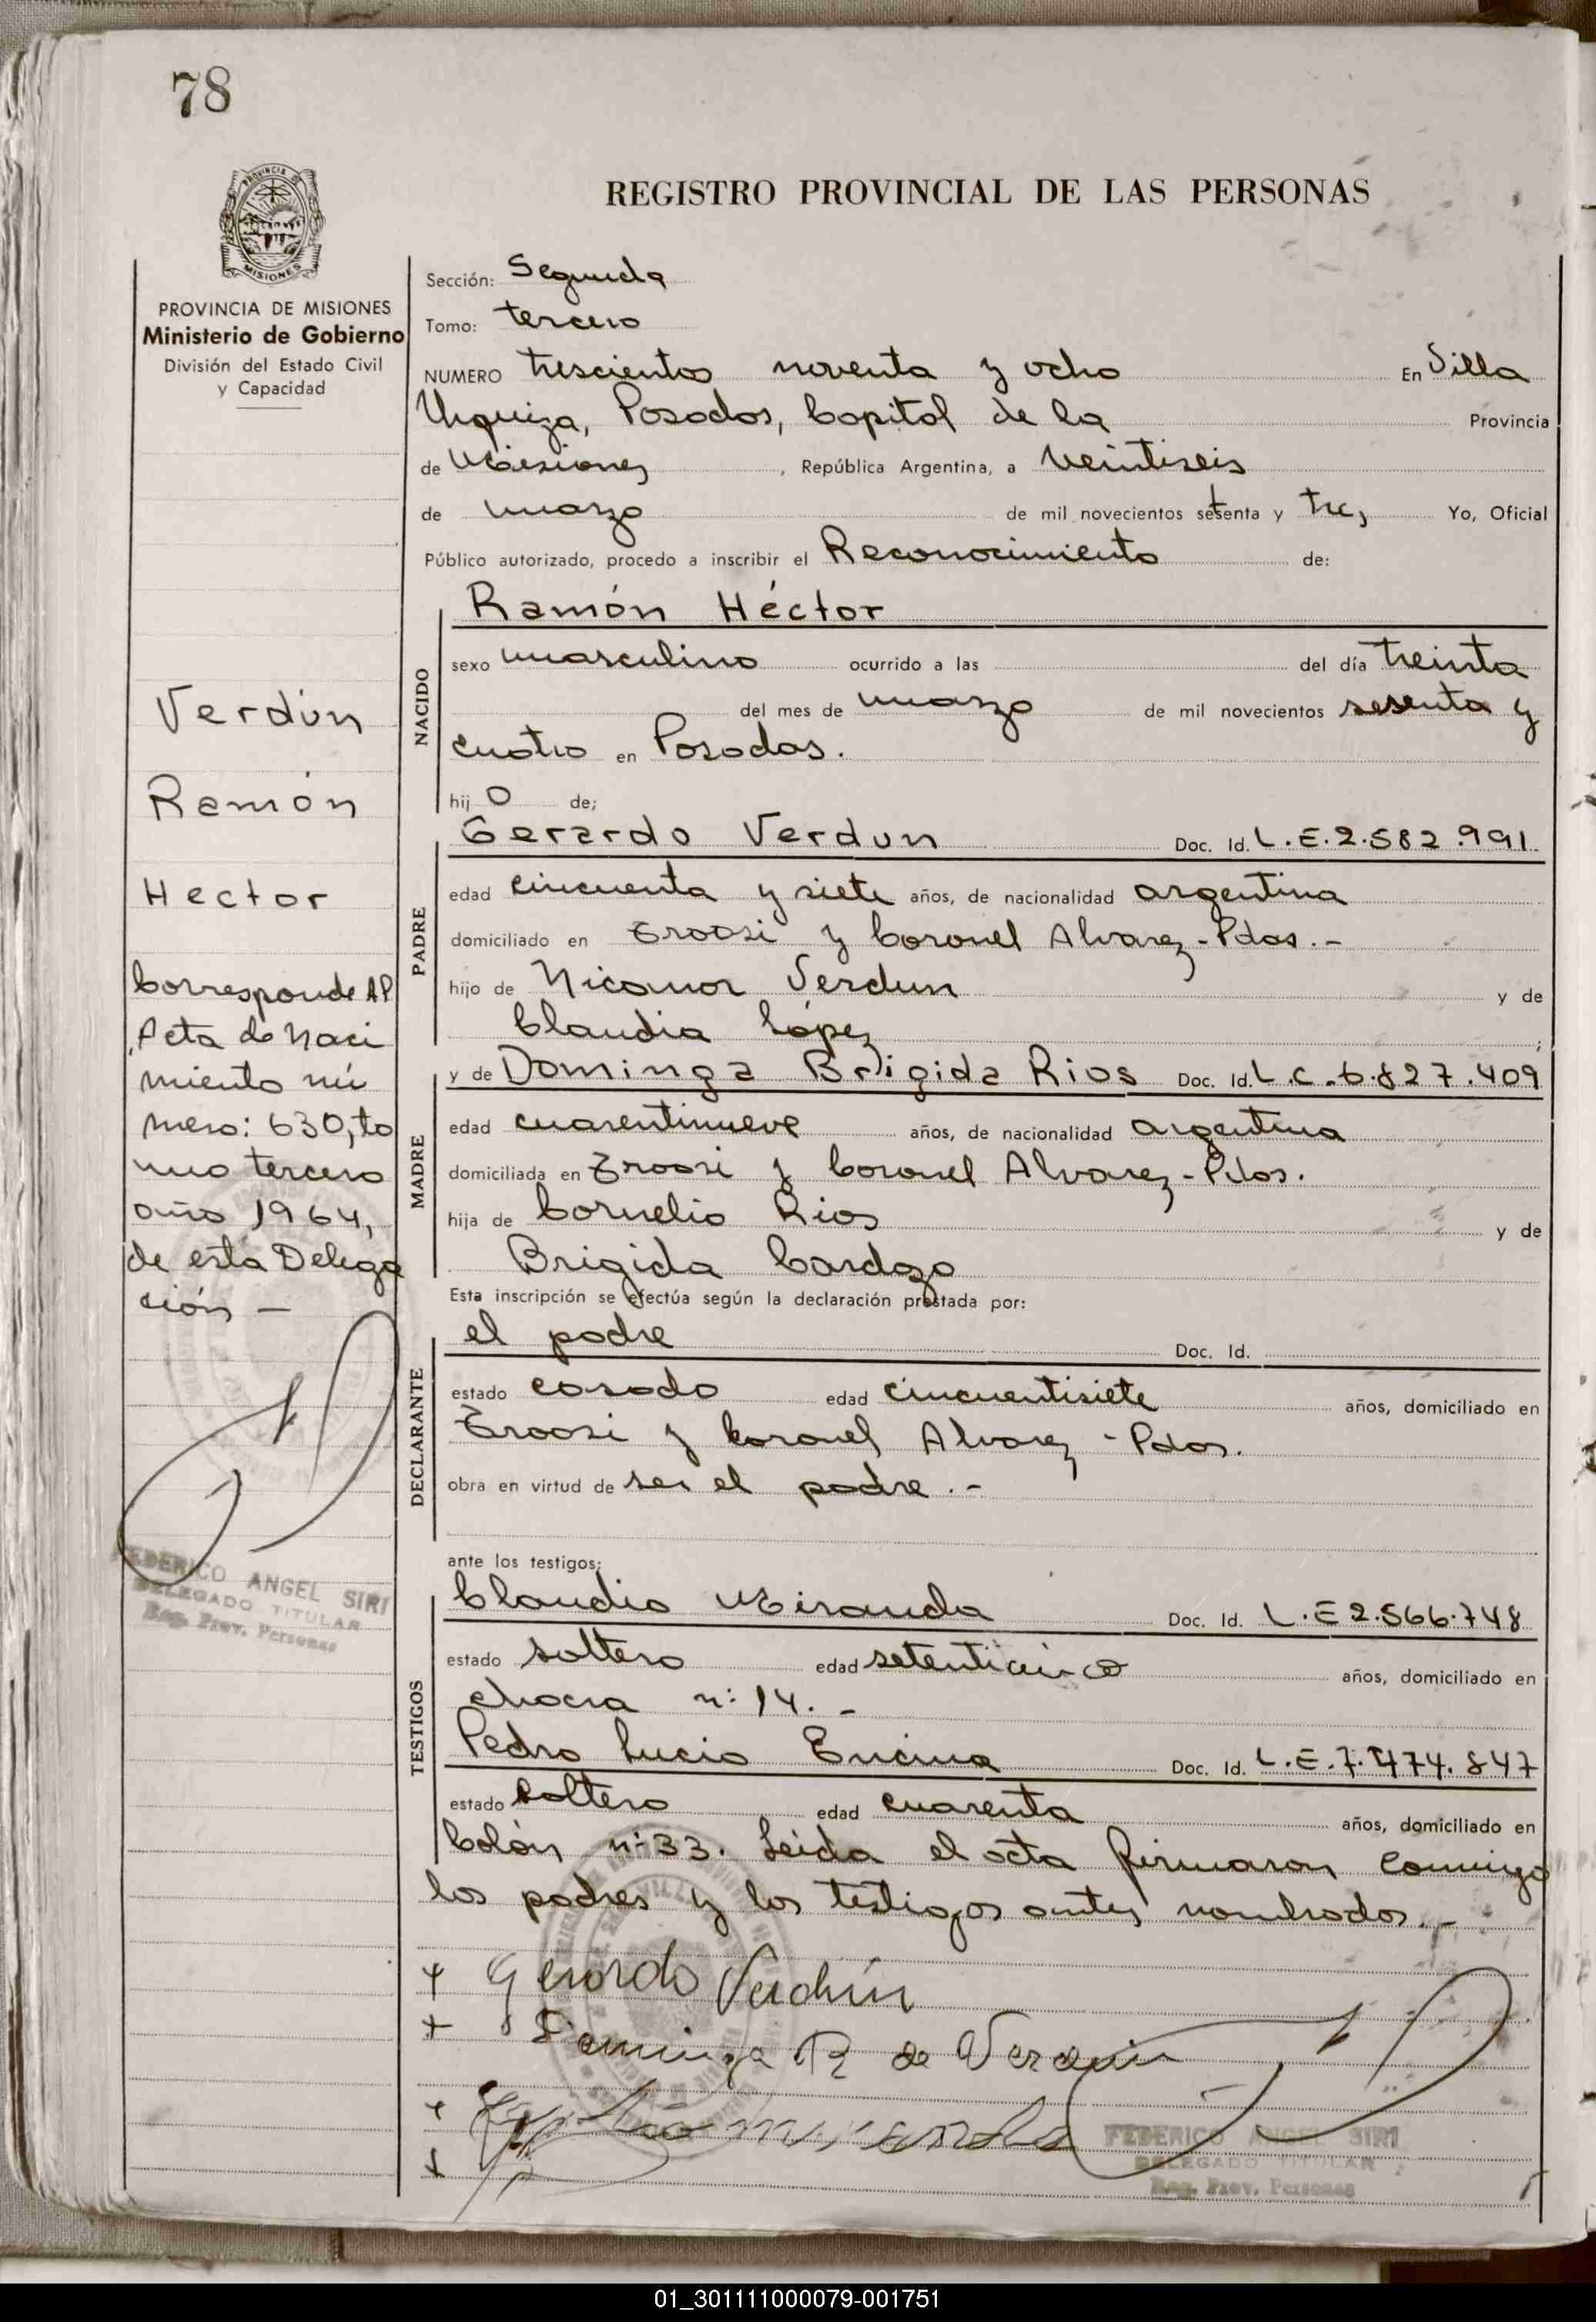 78
REGISTRO PROVINCIAL DE LAS PERSONAS
PROVINCIA DE MISIONES
Ministerio de Gobierno
División del Estado Civil
y Capacidad
Verdún
Ramón
Hector
Corresponde Al
Acta de Naci
miento nú
mero: 630, to
mo tercero
año 1964,
de esta Delega
ción —
FEDERICO ANGEL SIRI
DELEGADO TITULAR
Reg. Prov. Personas
Sección: Segunda
Tomo: tercero
NUMERO trescientos noventa y ocho En Villa
Urquiza, Posadas, Capital de la Provincia
de Misiones, República Argentina, a veintiseis
de marzo de mil novecientos setenta y tres Yo, Oficial
Público autorizado, procedo a inscribir el Reconocimiento de:
NACIDO
Ramón Héctor
sexo masculino ocurrido a las del día treinta
del mes de marzo de mil novecientos sesenta y
cuatro en Posadas.
hij o de;
PADRE
Gerardo Verdun Doc. Id. L.E.2.582.991
edad cincuenta y siete años, de nacionalidad argentina
domiciliado en y Coronel Alvarez - Pdas. -
hijo de Nicanor Verdun y de
Claudia López ;
MADRE
y de Dominga Brigida Rios Doc. Id. L.C.6.827.409
edad cuarentinueve años, de nacionalidad argentina
domiciliada en y Coronel Alvarez - Pdas.
hija de Cornelio Rios y de
Brigida Cardozo
Esta inscripción se efectúa según la declaración prestada por:
DECLARANTE
el padre Doc. Id.
estado casado edad cincuentisiete años, domiciliado en
y Coronel Alvarez - Pdas.
obra en virtud de ser el padre. -
ante los testigos;
TESTIGOS
Claudio Miranda Doc. Id. L.E 2.566.748
estado soltero edad setenticinco años, domiciliado en
chacra n: 14. -
Pedro Lucio Encina Doc. Id. L.E.7.474.847
estado soltero edad cuarenta años, domiciliado en
Colón n: 33. Leida el acta firmaron conmigo
los padres y los testigos antes nombrados. -
Gerardo Verdún
Dominga R de Verdun
Miranda
FEDERICO ANGEL SIRI
DELEGADO TITULAR
Reg. Prov. Personas
01_301111000079-001751